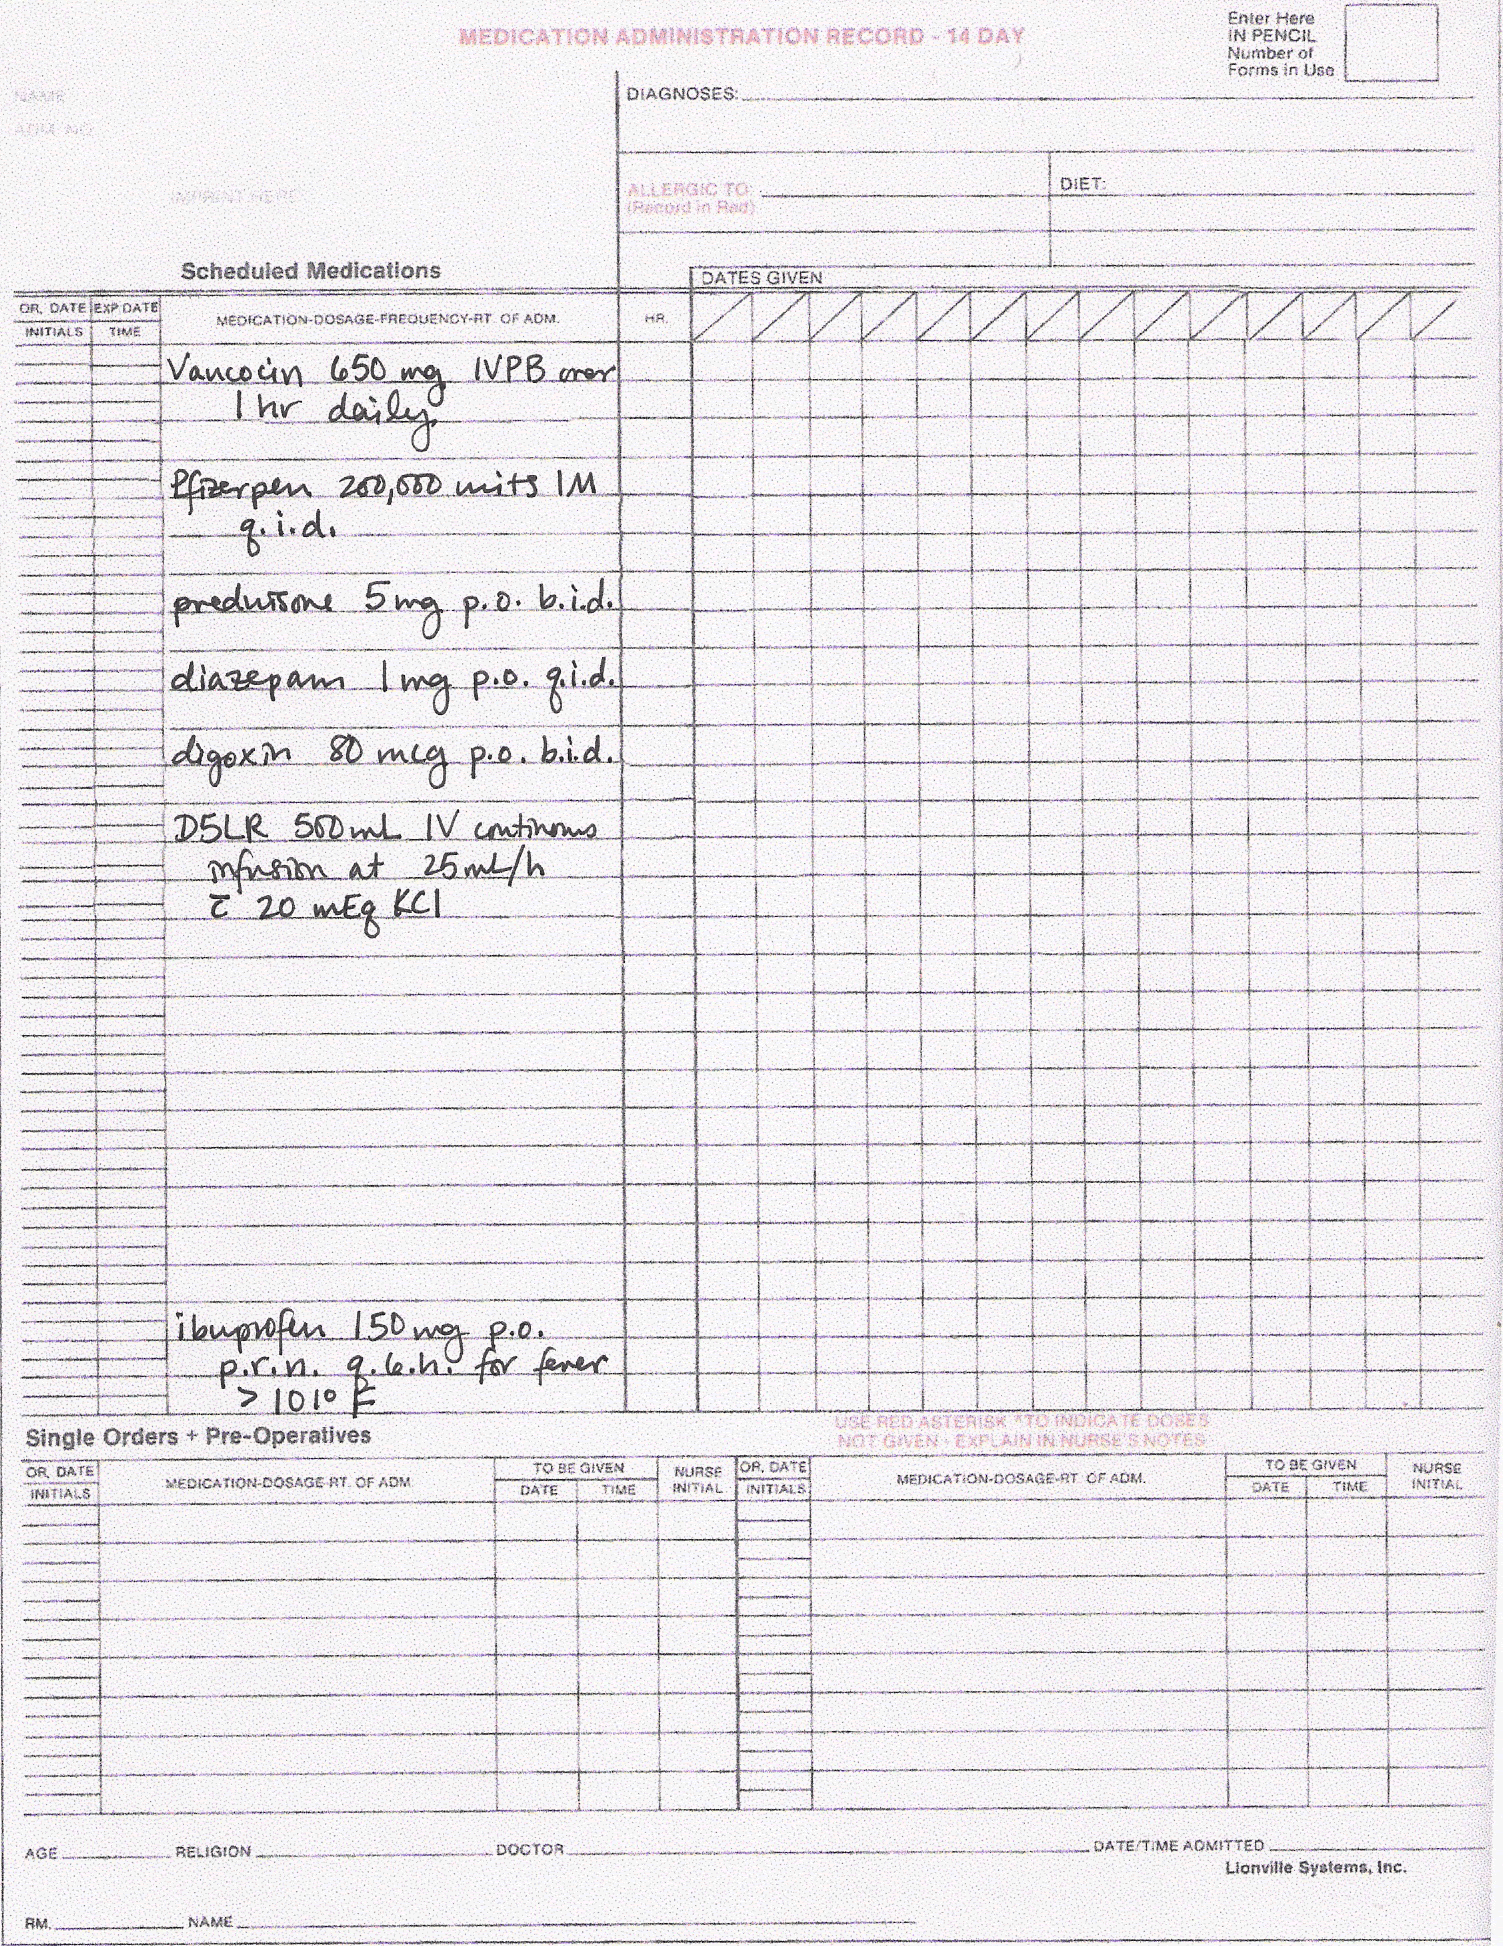 MEDICATION ADMINISTRATION RECORD - 14 DAY
Enter Here
IN PENCIL
Number of
Forms in Use
NAME
ADM. NO.
IMPRINT HERE
DIAGNOSES:
ALLERGIC TO:
(Record in Red)
DIET:
Scheduled Medications
DATES GIVEN
OR. DATE EXP DATE
INITIALS TIME
MEDICATION-DOSAGE-FREQUENCY-RT. OF ADM.
HR.
Vancocin 650 mg IVPB over
1 hr daily
Pfizerpen 200,000 units IM
q.i.d.
prednisone 5 mg p.o. b.i.d.
diazepam 1 mg p.o. q.i.d.
digoxin 80 mcg p.o. b.i.d.
D5LR 500 mL IV continous
infusion at 25 mL/h
c̄ 20 mEq KCl
ibuprofen 150 mg p.o.
p.r.n. q.6.h. for fever
> 101° F
USE RED ASTERISK *TO INDICATE DOSES
NOT GIVEN - EXPLAIN IN NURSE'S NOTES
Single Orders + Pre-Operatives
OR. DATE
INITIALS
MEDICATION-DOSAGE-RT. OF ADM.
TO BE GIVEN
DATE TIME
NURSE
INITIAL
OR. DATE
INITIALS
MEDICATION-DOSAGE-RT. OF ADM.
TO BE GIVEN
DATE TIME
NURSE
INITIAL
AGE RELIGION DOCTOR DATE/TIME ADMITTED
Lionville Systems, Inc.
RM. NAME